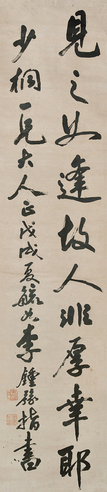 見之如逢故人非厚幸耶
少桐一兄大人正戊戌夏毓如李鍾豫指書